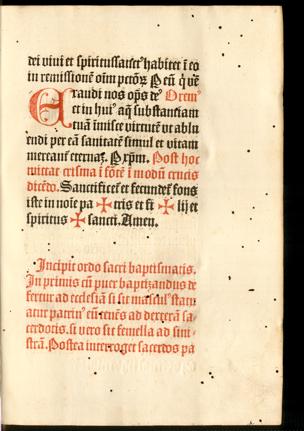 dei viui et spiritussanctꝰ habitet ĩ eo
in remissionẽ oĩm pctõꝝ P eũ q̃ vẽ
Exaudi nos ops̃ deꝰ Oremꝰ
et in huiꝰ aq̃ substantiam
tuã ĩmitte virtutẽ vt ablu
endi per eã sanitatẽ simul et vitam
mereant̃ eternaʒ. P xp̃m. Post hoc
mittat crisma ĩ fõtẽ ĩ modũ crucis
dicẽdo. Sanctificet̃ et fecundet̃ fons
iste in noĩe pa ✠ tris et fi ✠ lij et
spiritus ✠ sancti. Amen.
Incipit ordo sacri baptismatis.
In primis cũ puer baptizandus de
fertur ad ecclesiã si sit masculꝰ statu
atur patrinꝰ eũ tenẽs ad dexterã sa
cerdotis. si vero sit femella ad sini
strã. Postea interroget sacerdos pa